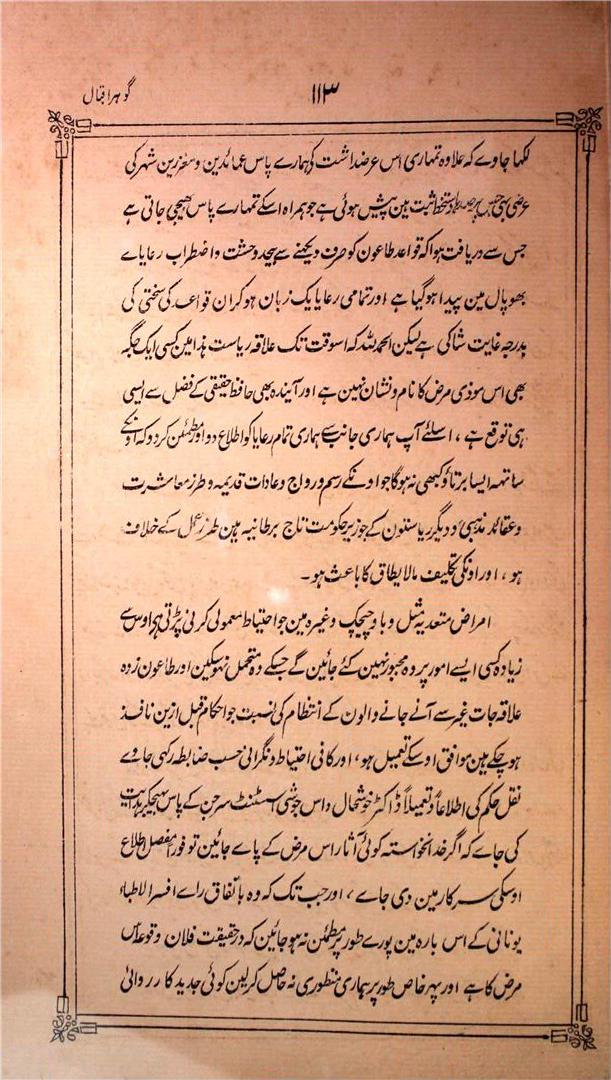 گوہر اقبال
۱۱۳
لکہا جاوے کہ علاوہ تمہاری اس عرضداشت کی ہمارے پاس عمائدین و معززین شہر کی
عرضی بہی جسپر دستخط ثبت ہین پیش ہوئی ہے جو ہمراہ اسکے تمہارے پاس بھیجی جاتی ہے
جس سے دریافت ہوا کہ قواعد طاعون کو صرف دیکھنے سے بیحد وحشت و اضطراب رعایاے
بھوپال مین پیدا ہوگیا ہے اور تمامی رعایا یک زبان ہوکر ان قواعد کی سختی کی
بدرجہ غایت شاکی ہے لیکن الحمد للہ کہ اسوقت تک علاقہ ریاست ہذا مین کسی ایک جگہ
بھی اس موذی مرض کا نام و نشان نہین ہے اور آیندہ بھی حافظ حقیقی کے فضل سے ایسی
ہی توقع ہے ، اسلئے آپ ہماری جانب سے ہماری تمام رعایا کو اطلاع دو اور مطمئن کردو کہ اونکے
ساتہہ ایسا برتاؤ کبھی نہ ہوگا جو اونکے رسم و رواج و عادات قدیمہ و طرز معاشرت
و عقائد مذہبی و دیگر ریاستون کے جو زیر حکومت تاج برطانیہ ہین طرز عمل کے خلاف
ہو ، اور اونکی تکلیف مالا یطاق کا باعث ہو ۔
امراض متعدیہ مثل وبا و چیچک وغیرہ مین جو احتیاط معمولی کرنی پڑتی ہے اوس سے
زیادہ کسی ایسے امور پر وہ مجبور نہین کئے جائین گے جسکے وہ متحمل نہوسکین اور طاعون زدہ
علاقہ جات غیر سے آنے جانے والون کے انتظام کی نسبت جو احکام قبل ازین نافذ
ہوچکے ہین موافق اوسکے تعمیل ہو ، اور کافی احتیاط و نگرانی حسب ضابطہ رکہی جاوے
نقل حکم کی اطلاعاً و تعمیلاً ڈاکٹر خوشحال داس جوشی اسسٹنٹ سرجن کے پاس بھیجکر ہدایت
کی جاے کہ اگر خدانخواستہ کوئی آثار اس مرض کے پاے جائین تو فوراً مفصل اطلاع
اوسکی سرکار مین دی جاے ، اور جب تک کہ وہ باتفاق راے افسر الاطباء
یونانی کے اس بارہ مین پورے طور پر مطمئن نہ ہو جائین کہ درحقیقت فلان وقوعہ اس
مرض کا ہے اور پہر خاص طور پر ہماری منظوری نہ حاصل کرلین کوئی جدید کارروائی